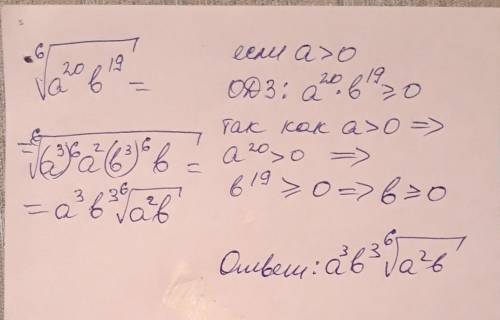 ⁶√(a²⁰b¹⁹) =
= ⁶√((a³)⁶a²(b³)⁶b) =
= a³b³ ⁶√(a²b)
если a>0
ОДЗ: a²⁰·b¹⁹⩾0
так как a>0 =>
a²⁰>0 =>
b¹⁹ ⩾ 0 => b⩾0
Ответ: a³b³ ⁶√(a²b)